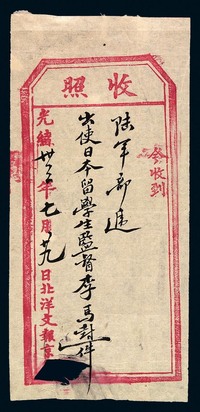 收照
今收到
陸軍部遞
出使日本留學生監督李馬封件
光緒卅三年七月廿九日北洋文報局